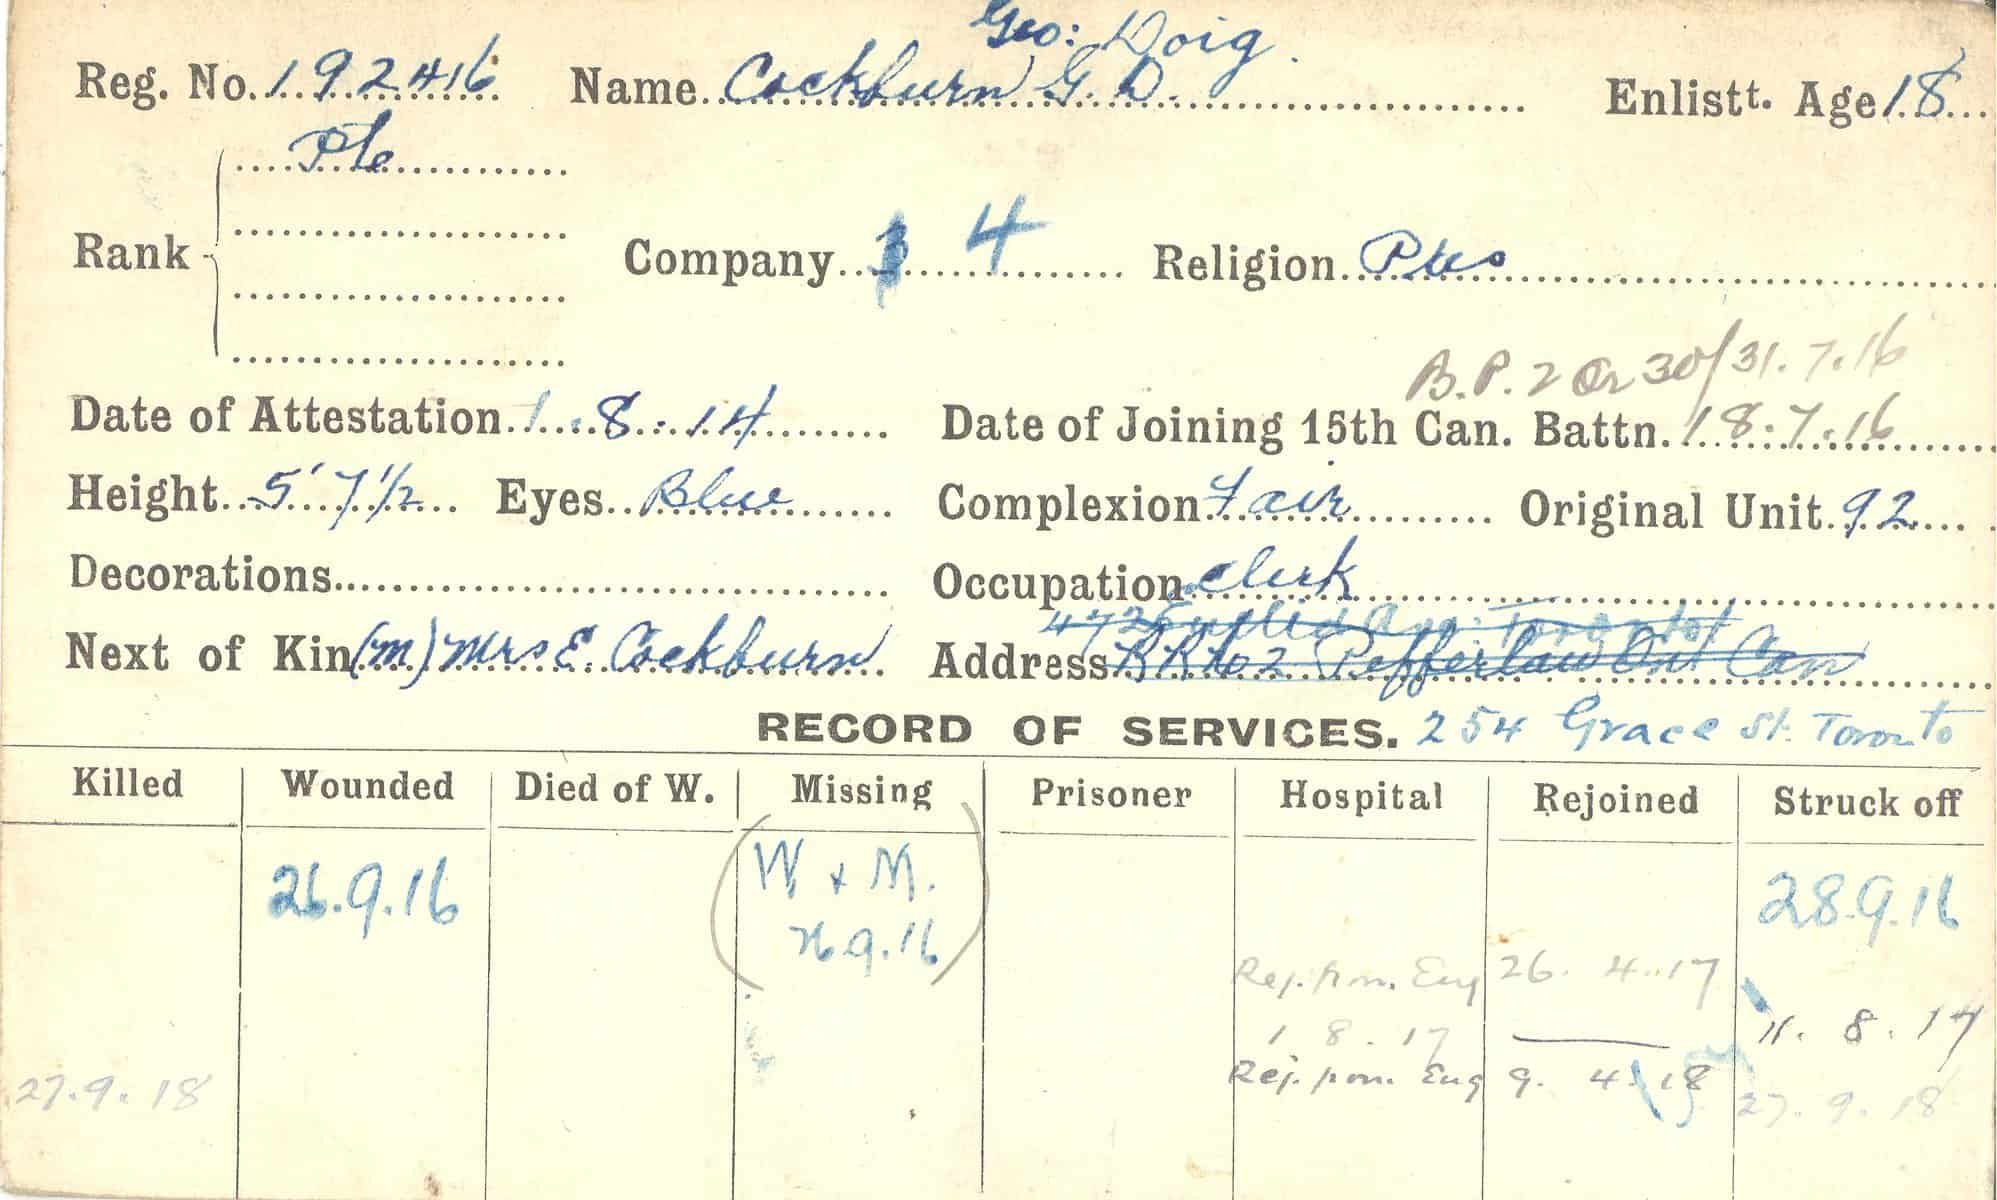 Geo: Doig.
Reg. No. 192416 Name Cockburn G. D. Enlistt. Age 18
Pte
Rank Company 4 Religion Pres
B.P. 2 Or 30/31.7.16
Date of Attestation 1.8.14 Date of Joining 15th Can. Battn. 18.7.16
Height 5' 7 1/2 Eyes Blue Complexion Fair Original Unit 92
Decorations Occupation Clerk
472 Euclid Ave: Toronto
Next of Kin (m) Mrs E. Cockburn Address RR No 2 Pefferlaw Ont Can
RECORD OF SERVICES. 254 Grace St. Toronto
Killed Wounded Died of W. Missing Prisoner Hospital Rejoined Struck off
26.9.16 (W + M. 28.9.16
26 9.16)
Rej. from Eng 26. 4.17
1 8. 17 11. 8. 17
Rej. from Eng 9. 4. 18
27.9.18 27. 9. 18